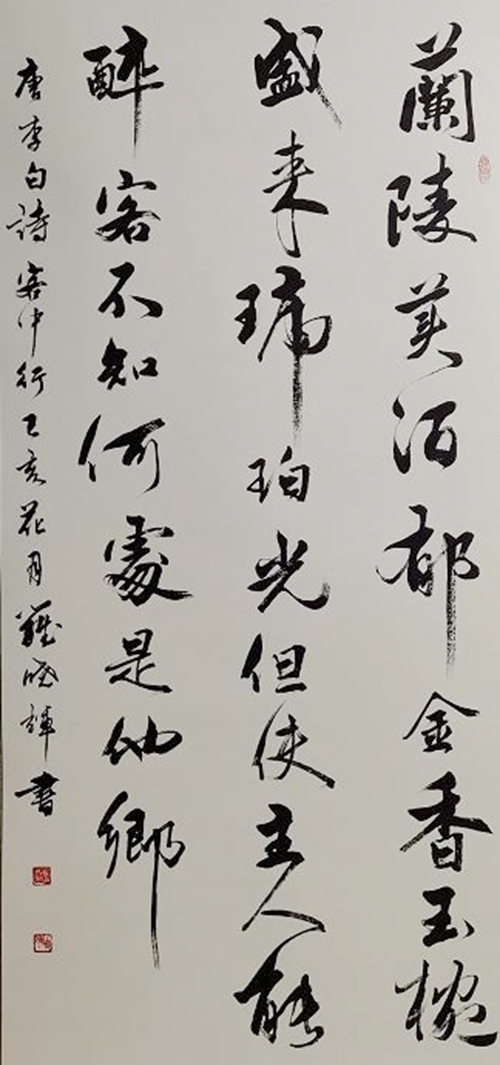 蘭陵美酒郁金香玉椀
盛来琥珀光但使主人能
醉客不知何處是他鄉
唐李白詩客中行己亥花月羅曉輝書